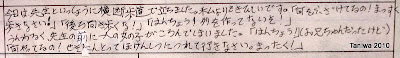 今日は先生といっしょうに横断歩道で立ちました。ホムよりきびしいです。「何をふざけてるの!まっすぐ
歩きなさい!」「後ろ向き歩く!」「はんちょう!列を作ってないを!」
うんわるく、先生の前に一人の女の子がころんでしまいました。「はんちょう!(お兄ちゃんだったけど)
何やってるの!せきにんとってほけんしつにつれて行きなさい。まったく!」
Taniwa 2010